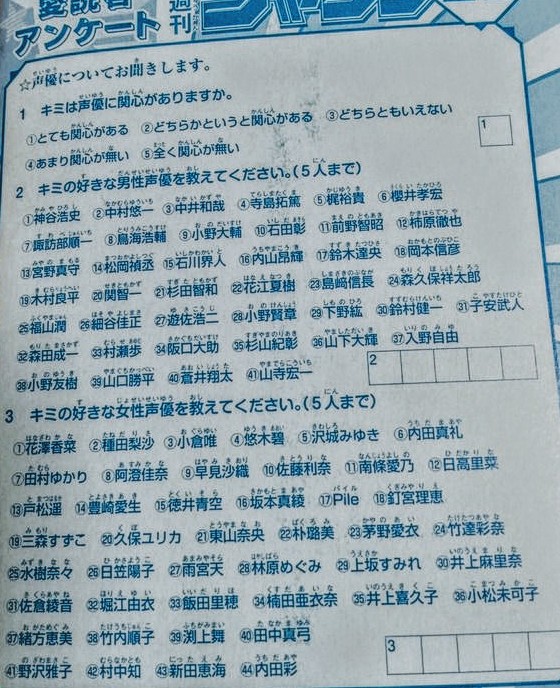 愛読者
アンケート
週刊
ジャンプ
☆声優についてお聞きします。
1 キミは声優に関心がありますか。
①とても関心がある ②どちらかというと関心がある ③どちらともいえない
④あまり関心が無い ⑤全く関心が無い
1
2 キミの好きな男性声優を教えてください。(5人まで)
①神谷浩史 ②中村悠一 ③中井和哉 ④寺島拓篤 ⑤梶裕貴 ⑥櫻井孝宏
⑦諏訪部順一 ⑧鳥海浩輔 ⑨小野大輔 ⑩石田彰 ⑪前野智昭 ⑫柿原徹也
⑬宮野真守 ⑭松岡禎丞 ⑮石川界人 ⑯内山昂輝 ⑰鈴木達央 ⑱岡本信彦
⑲木村良平 ⑳関智一 ㉑杉田智和 ㉒花江夏樹 ㉓島﨑信長 ㉔森久保祥太郎
㉕福山潤 ㉖細谷佳正 ㉗遊佐浩二 ㉘小野賢章 ㉙下野紘 ㉚鈴村健一 ㉛子安武人
㉜森田成一 ㉝村瀬歩 ㉞阪口大助 ㉟杉山紀彰 ㊱山下大輝 ㊲入野自由
㊳小野友樹 ㊴山口勝平 ㊵蒼井翔太 ㊶山寺宏一
2
3 キミの好きな女性声優を教えてください。(5人まで)
①花澤香菜 ②種田梨沙 ③小倉唯 ④悠木碧 ⑤沢城みゆき ⑥内田真礼
⑦田村ゆかり ⑧阿澄佳奈 ⑨早見沙織 ⑩佐藤利奈 ⑪南條愛乃 ⑫日高里菜
⑬戸松遥 ⑭豊崎愛生 ⑮徳井青空 ⑯坂本真綾 ⑰Pile ⑱釘宮理恵
⑲三森すずこ ⑳久保ユリカ ㉑東山奈央 ㉒朴璐美 ㉓茅野愛衣 ㉔竹達彩奈
㉕水樹奈々 ㉖日笠陽子 ㉗雨宮天 ㉘林原めぐみ ㉙上坂すみれ ㉚井上麻里奈
㉛佐倉綾音 ㉜堀江由衣 ㉝飯田里穂 ㉞楠田亜衣奈 ㉟井上喜久子 ㊱小松未可子
㊲緒方恵美 ㊳竹内順子 ㊴渕上舞 ㊵田中真弓
㊶野沢雅子 ㊷村中知 ㊸新田恵海 ㊹内田彩
3